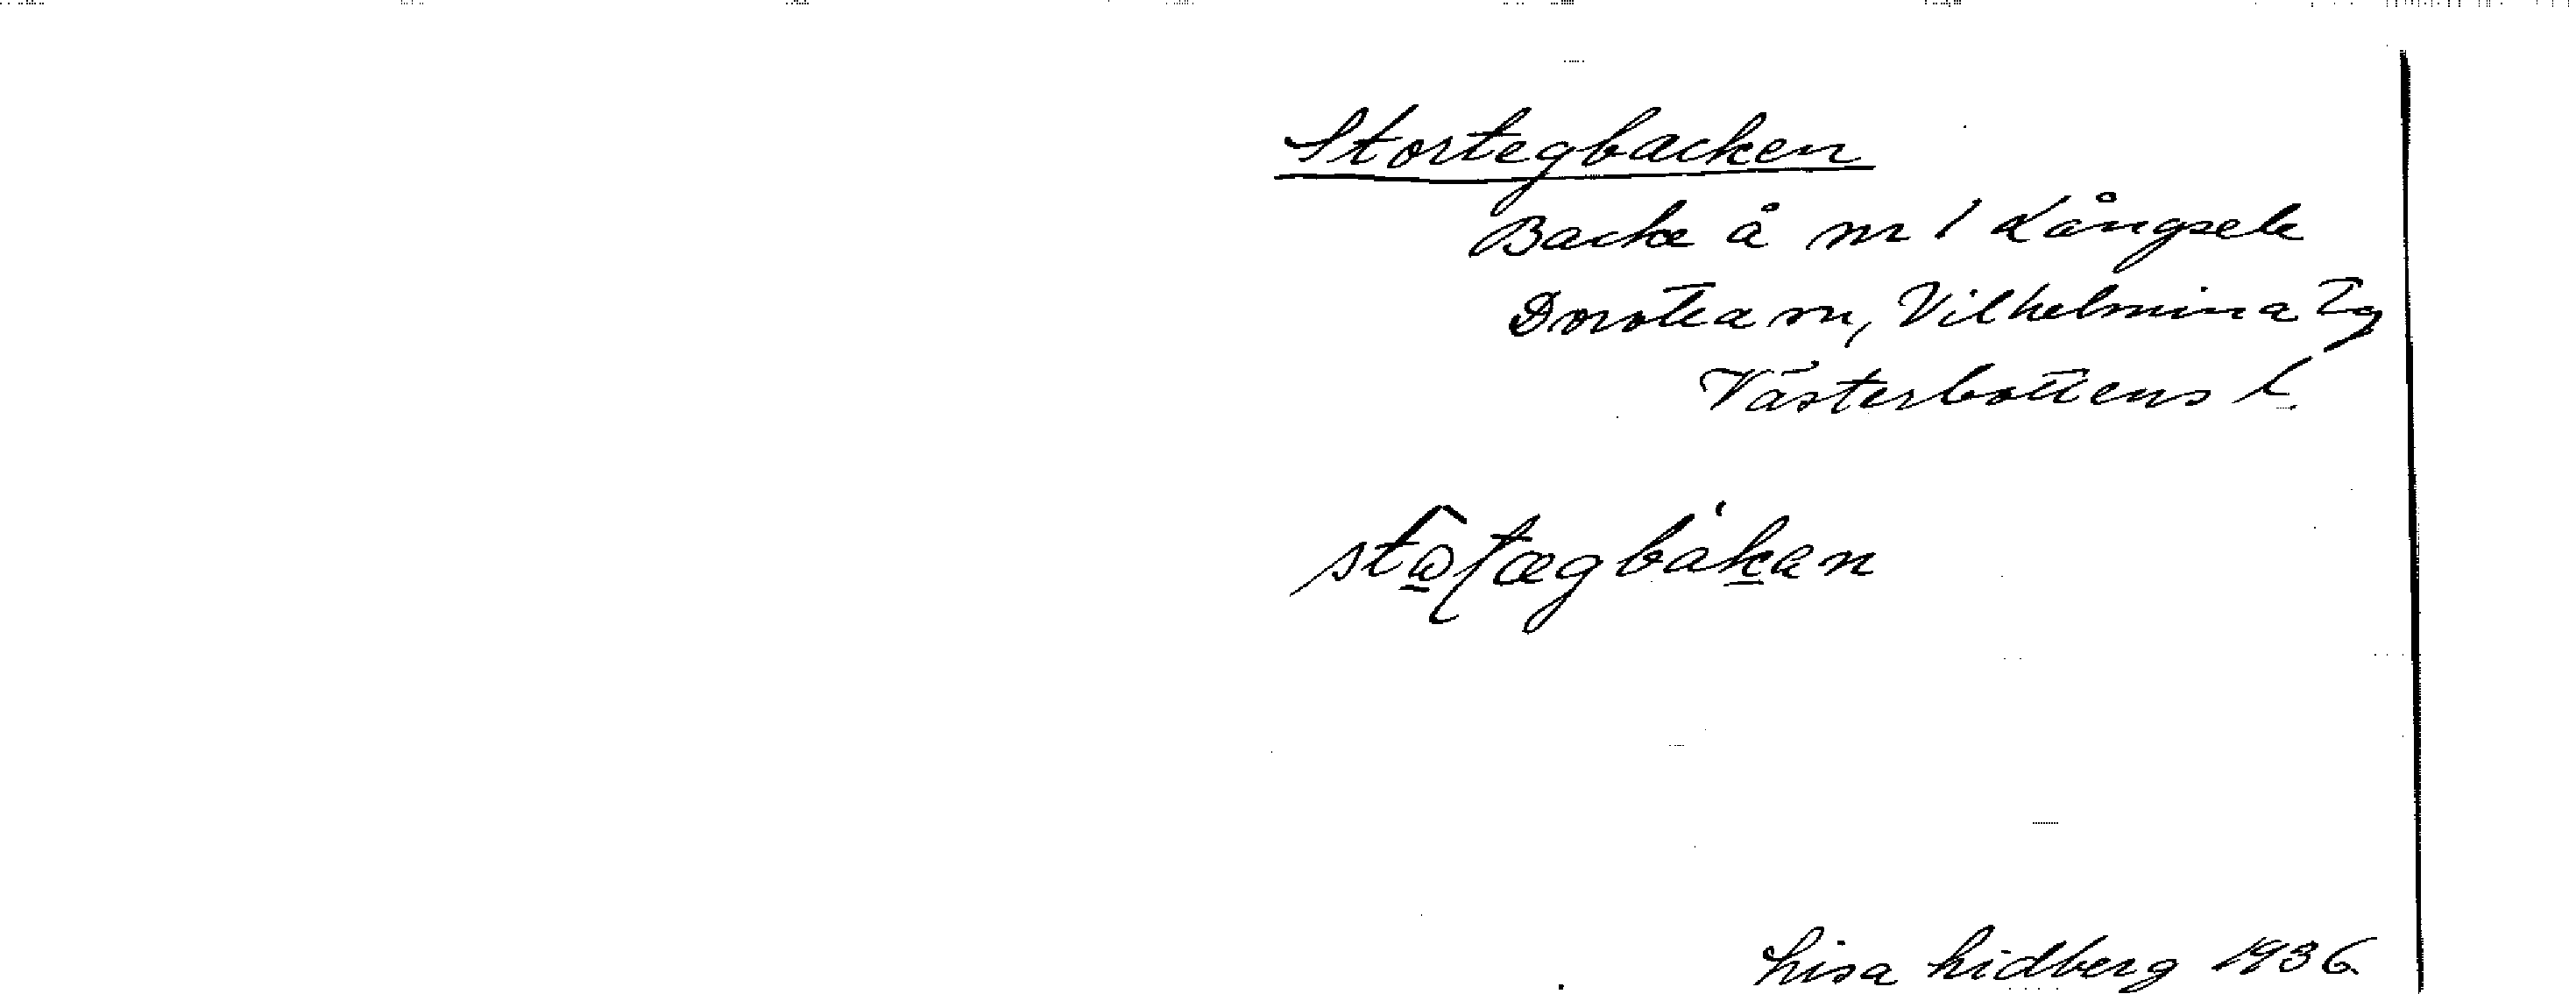 Stortegbacken
Backe å nr 1 Långsele
Dorotea sn, Vilhelmina Tg
Västerbottens l.
Lisa Lidberg 1936